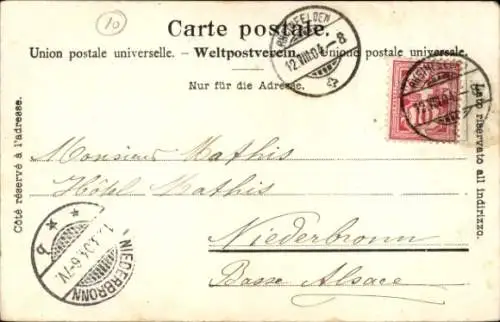 10
Carte postale.
Union postale universelle. – Weltpostverein. – Unione postale universale.
Nur für die Adresse.
Côté réservé à l'adresse.
Lato riservato all indirizzo.
RHEINFELDEN
12.VIII.04.–8
10
Monsieur Mathis
Hôtel Mathis
Niederbronn
Basse Alsace
NIEDERBRONN